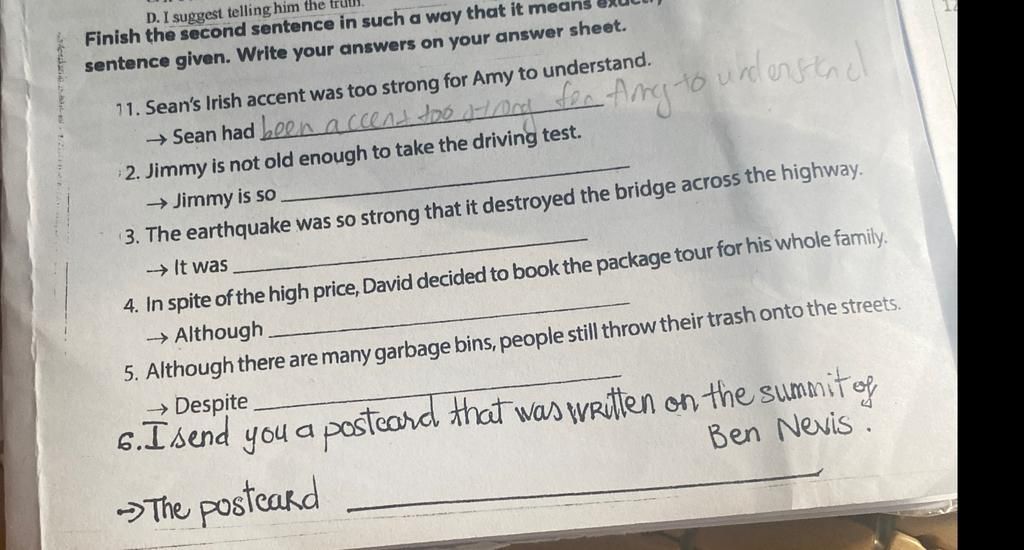 D. I suggest telling him the truth.
Finish the second sentence in such a way that it means exactly
sentence given. Write your answers on your answer sheet.
11. Sean's Irish accent was too strong for Amy to understand.
→ Sean had been accent too strong for Amy to understand
2. Jimmy is not old enough to take the driving test.
→ Jimmy is so
3. The earthquake was so strong that it destroyed the bridge across the highway.
→ It was
4. In spite of the high price, David decided to book the package tour for his whole family.
→ Although
5. Although there are many garbage bins, people still throw their trash onto the streets.
→ Despite
6. I send you a postcard that was written on the summit of
Ben Nevis.
→ The postcard